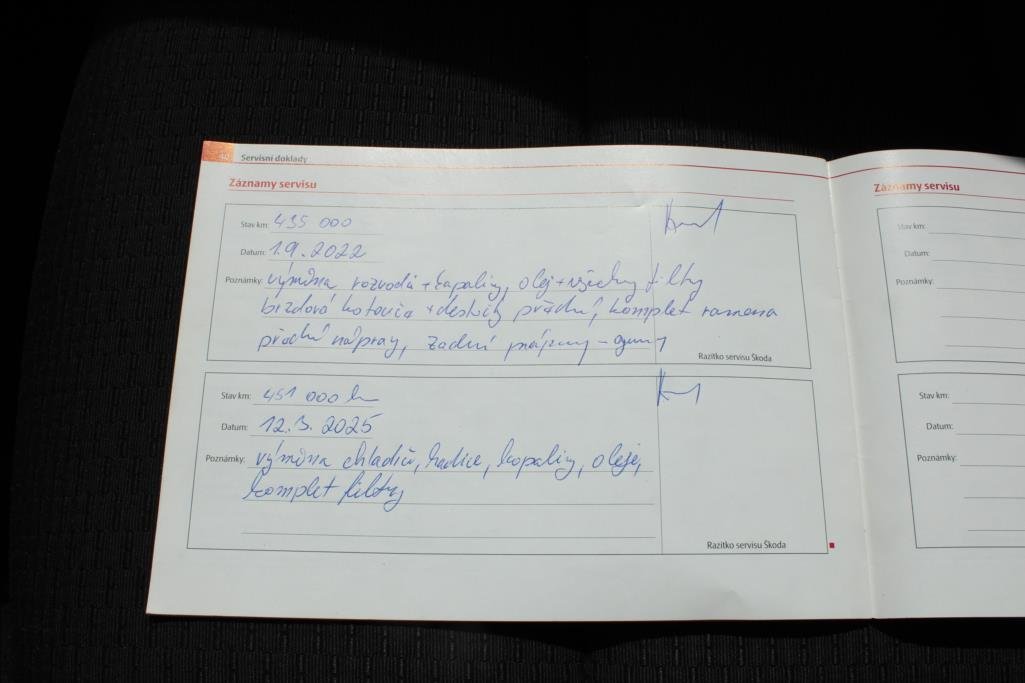 Servisní doklady
Záznamy servisu
Stav km: 435 000
Datum: 1.9.2022
Poznámky: výměna rozvodů + kapaliny, olej + všechny filtry
brzdová kotouče + destičky přední, komplet ramena
přední nápravy, zadní - gumy
Razítko servisu Škoda
Stav km: 451 000 km
Datum: 12.3.2025
Poznámky: výměna chladiče, hadice, kapaliny, oleje,
komplet filtry
Razítko servisu Škoda
Záznamy servisu
Stav km:
Datum:
Poznámky:
Stav km:
Datum:
Poznámky: